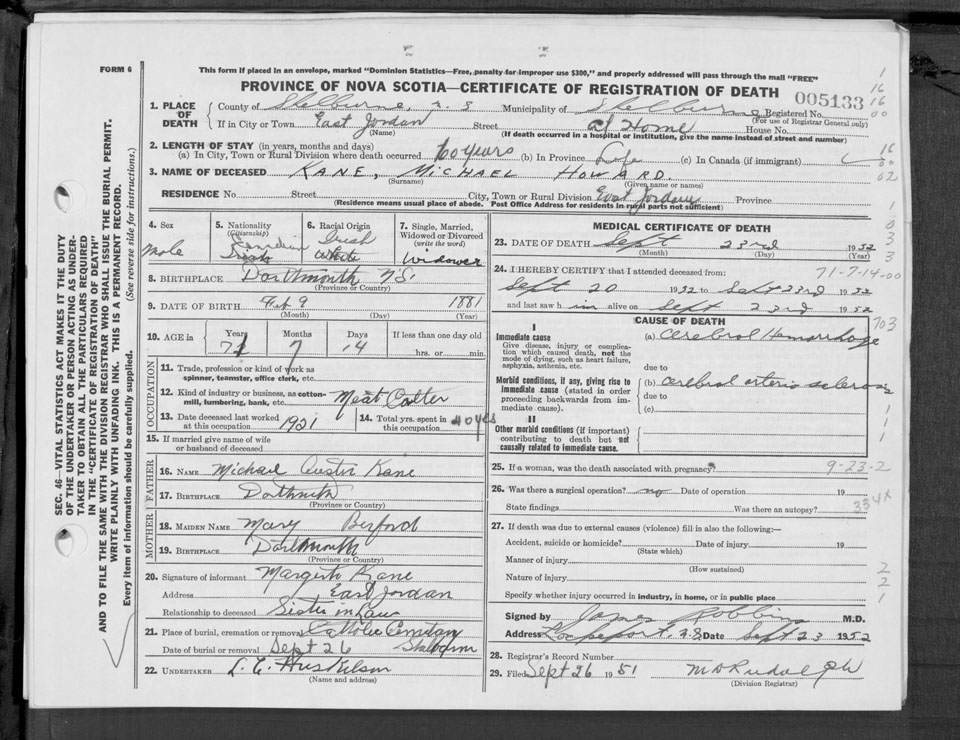 FORM 6
This form if placed in an envelope, marked "Dominion Statistics—Free, penalty for improper use $300," and properly addressed will pass through the mail "FREE"
PROVINCE OF NOVA SCOTIA—CERTIFICATE OF REGISTRATION OF DEATH
005133
1. PLACE OF DEATH { County of Shelburne, N. S Municipality of Shelburne Registered No.
(For use of Registrar General only)
If in City or Town East Jordan Street at Home House No.
(Name) (If death occurred in a hospital or institution, give the name instead of street and number)
2. LENGTH OF STAY (in years, months and days)
(a) In City, Town or Rural Division where death occurred 60 years (b) In Province Life (c) In Canada (if immigrant)
3. NAME OF DECEASED KANE, MICHAEL HOWARD.
(Surname) (Given name or names)
RESIDENCE No. Street City, Town or Rural Division East Jordan Province
(Residence means usual place of abode. Post Office Address for residents in rural parts not sufficient)
4. Sex Male
5. Nationality (Citizenship) Canadian
6. Racial Origin Irish White
7. Single, Married, Widowed or Divorced (write the word) Widower
8. BIRTHPLACE Dartmouth N S
(Province or Country)
9. DATE OF BIRTH Feb 9 1881
(Month) (Day) (Year)
10. AGE in Years Months Days If less than one day old
71 7 14 hrs. or min.
OCCUPATION
11. Trade, profession or kind of work as spinner, teamster, office clerk, etc.
12. Kind of industry or business, as cotton-mill, lumbering, bank, etc. Meat Cutter
13. Date deceased last worked at this occupation 1921
14. Total yrs. spent in this occupation 40 yes
15. If married give name of wife or husband of deceased
FATHER
16. NAME Michael Kane
17. BIRTHPLACE Dartmouth
(Province or Country)
MOTHER
18. MAIDEN NAME Mary Berford
19. BIRTHPLACE Dartmouth
(Province or Country)
20. Signature of informant Kane
Address East Jordan
Relationship to deceased Sister in Law
21. Place of burial, cremation or removal Catholic Cemetary
Date of burial or removal Sept 26 Shelburne
22. UNDERTAKER L. E. Huskilson
(Name and address)
MEDICAL CERTIFICATE OF DEATH
23. DATE OF DEATH Sept 23rd 1952
(Month) (Day) (Year)
24. I HEREBY CERTIFY that I attended deceased from: 71-7-14-00
Sept 20 1952 to Sept 23rd 1952
and last saw him alive on Sept 23rd 1952
CAUSE OF DEATH 703
I
Immediate cause (a) Cerebral Hemorrhage
Give disease, injury or complication which caused death, not the mode of dying, such as heart failure, asphyxia, asthenia, etc.
due to
Morbid conditions, if any, giving rise to immediate cause (stated in order proceeding backwards from immediate cause).
(b) cerebral arterio sclerosis
due to
(c)
II
Other morbid conditions (if important) contributing to death but not causally related to immediate cause.
25. If a woman, was the death associated with pregnancy? 9-23-2
26. Was there a surgical operation? no Date of operation 19
State findings Was there an autopsy? 334X
27. If death was due to external causes (violence) fill in also the following:—
Accident, suicide or homicide? Date of injury 19
(State which)
Manner of injury
(How sustained)
Nature of injury
Specify whether injury occurred in industry, in home, or in public place
Signed by James Robbins M.D.
Address Lockeport. N.S Date Sept 23 1952
28. Registrar's Record Number
29. Filed Sept 26 1951 M D Rudolph
(Division Registrar)
SEC. 46—VITAL STATISTICS ACT MAKES IT THE DUTY
OF THE UNDERTAKER OR PERSON ACTING AS UNDER-
TAKER TO OBTAIN ALL THE PARTICULARS REQUIRED
IN THE "CERTIFICATE OF REGISTRATION OF DEATH"
AND TO FILE THE SAME WITH THE DIVISION REGISTRAR WHO SHALL ISSUE THE BURIAL PERMIT.
WRITE PLAINLY WITH UNFADING INK. THIS IS A PERMANENT RECORD.
Every item of information should be carefully supplied. (See reverse side for instructions.)